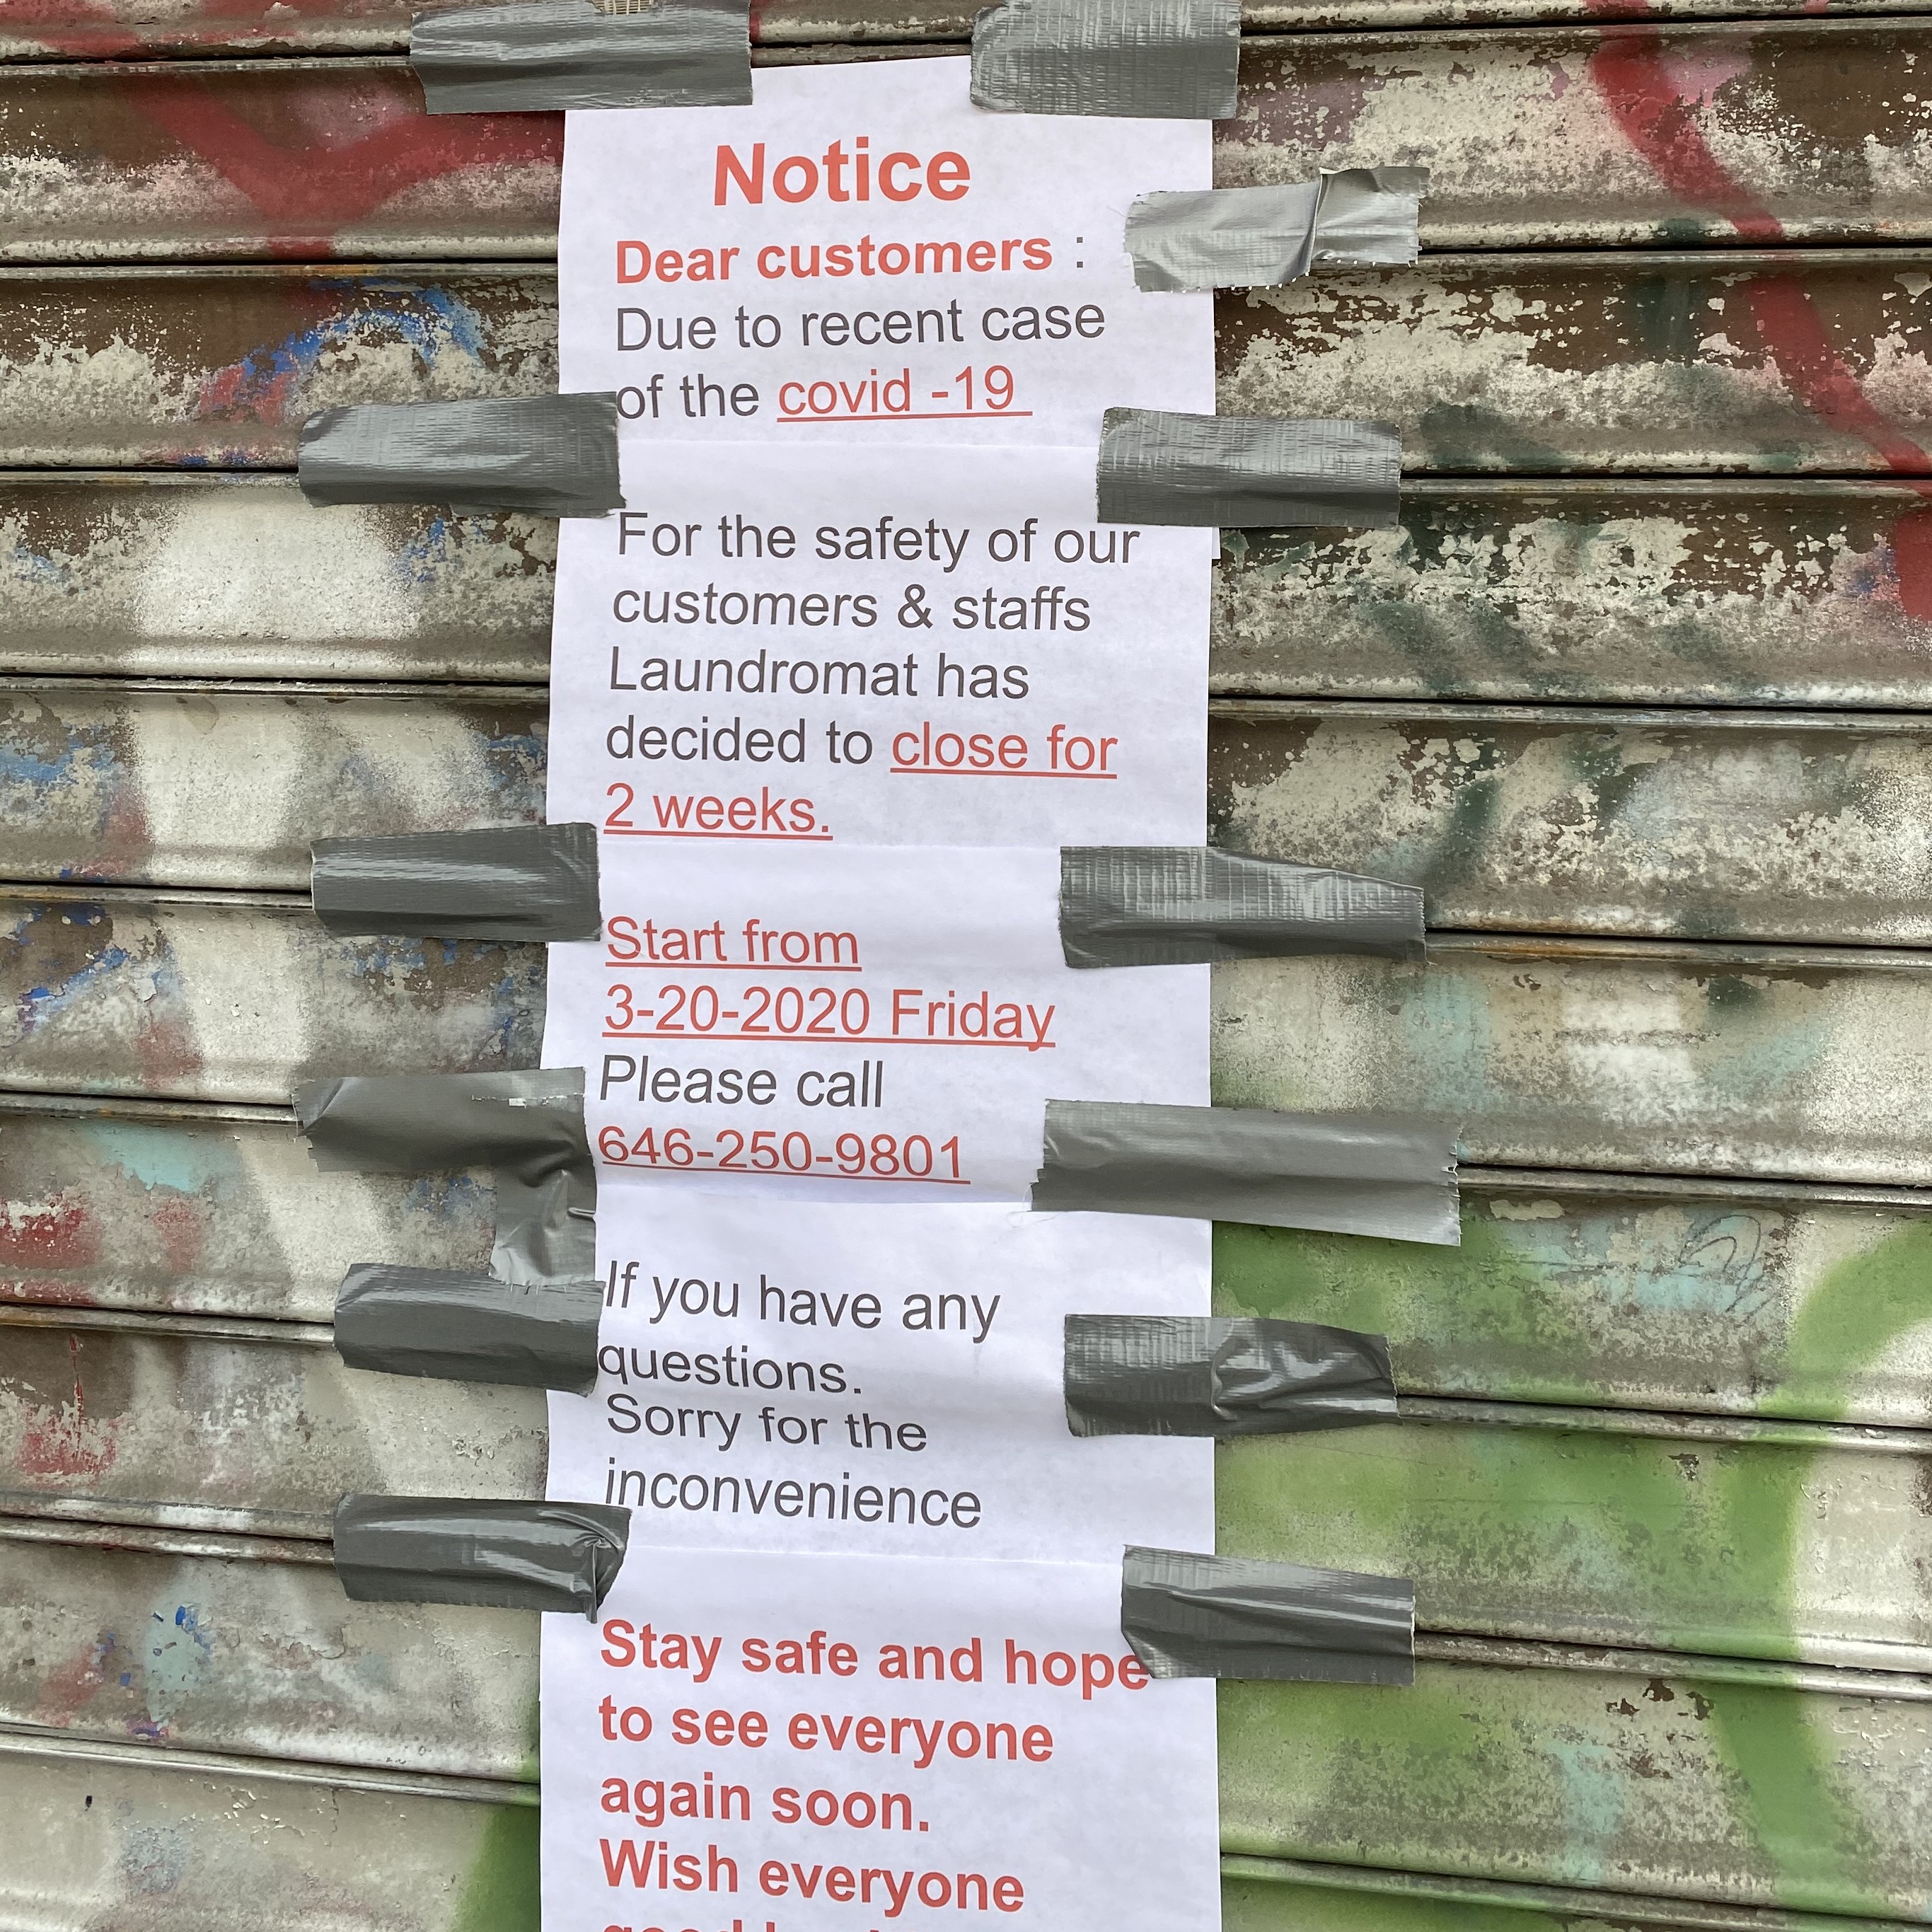 Notice
Dear customers :
Due to recent case
of the covid -19
For the safety of our
customers & staffs
Laundromat has
decided to close for
2 weeks.
Start from
3-20-2020 Friday
Please call
646-250-9801
If you have any
questions.
Sorry for the
inconvenience
Stay safe and hope
to see everyone
again soon.
Wish everyone